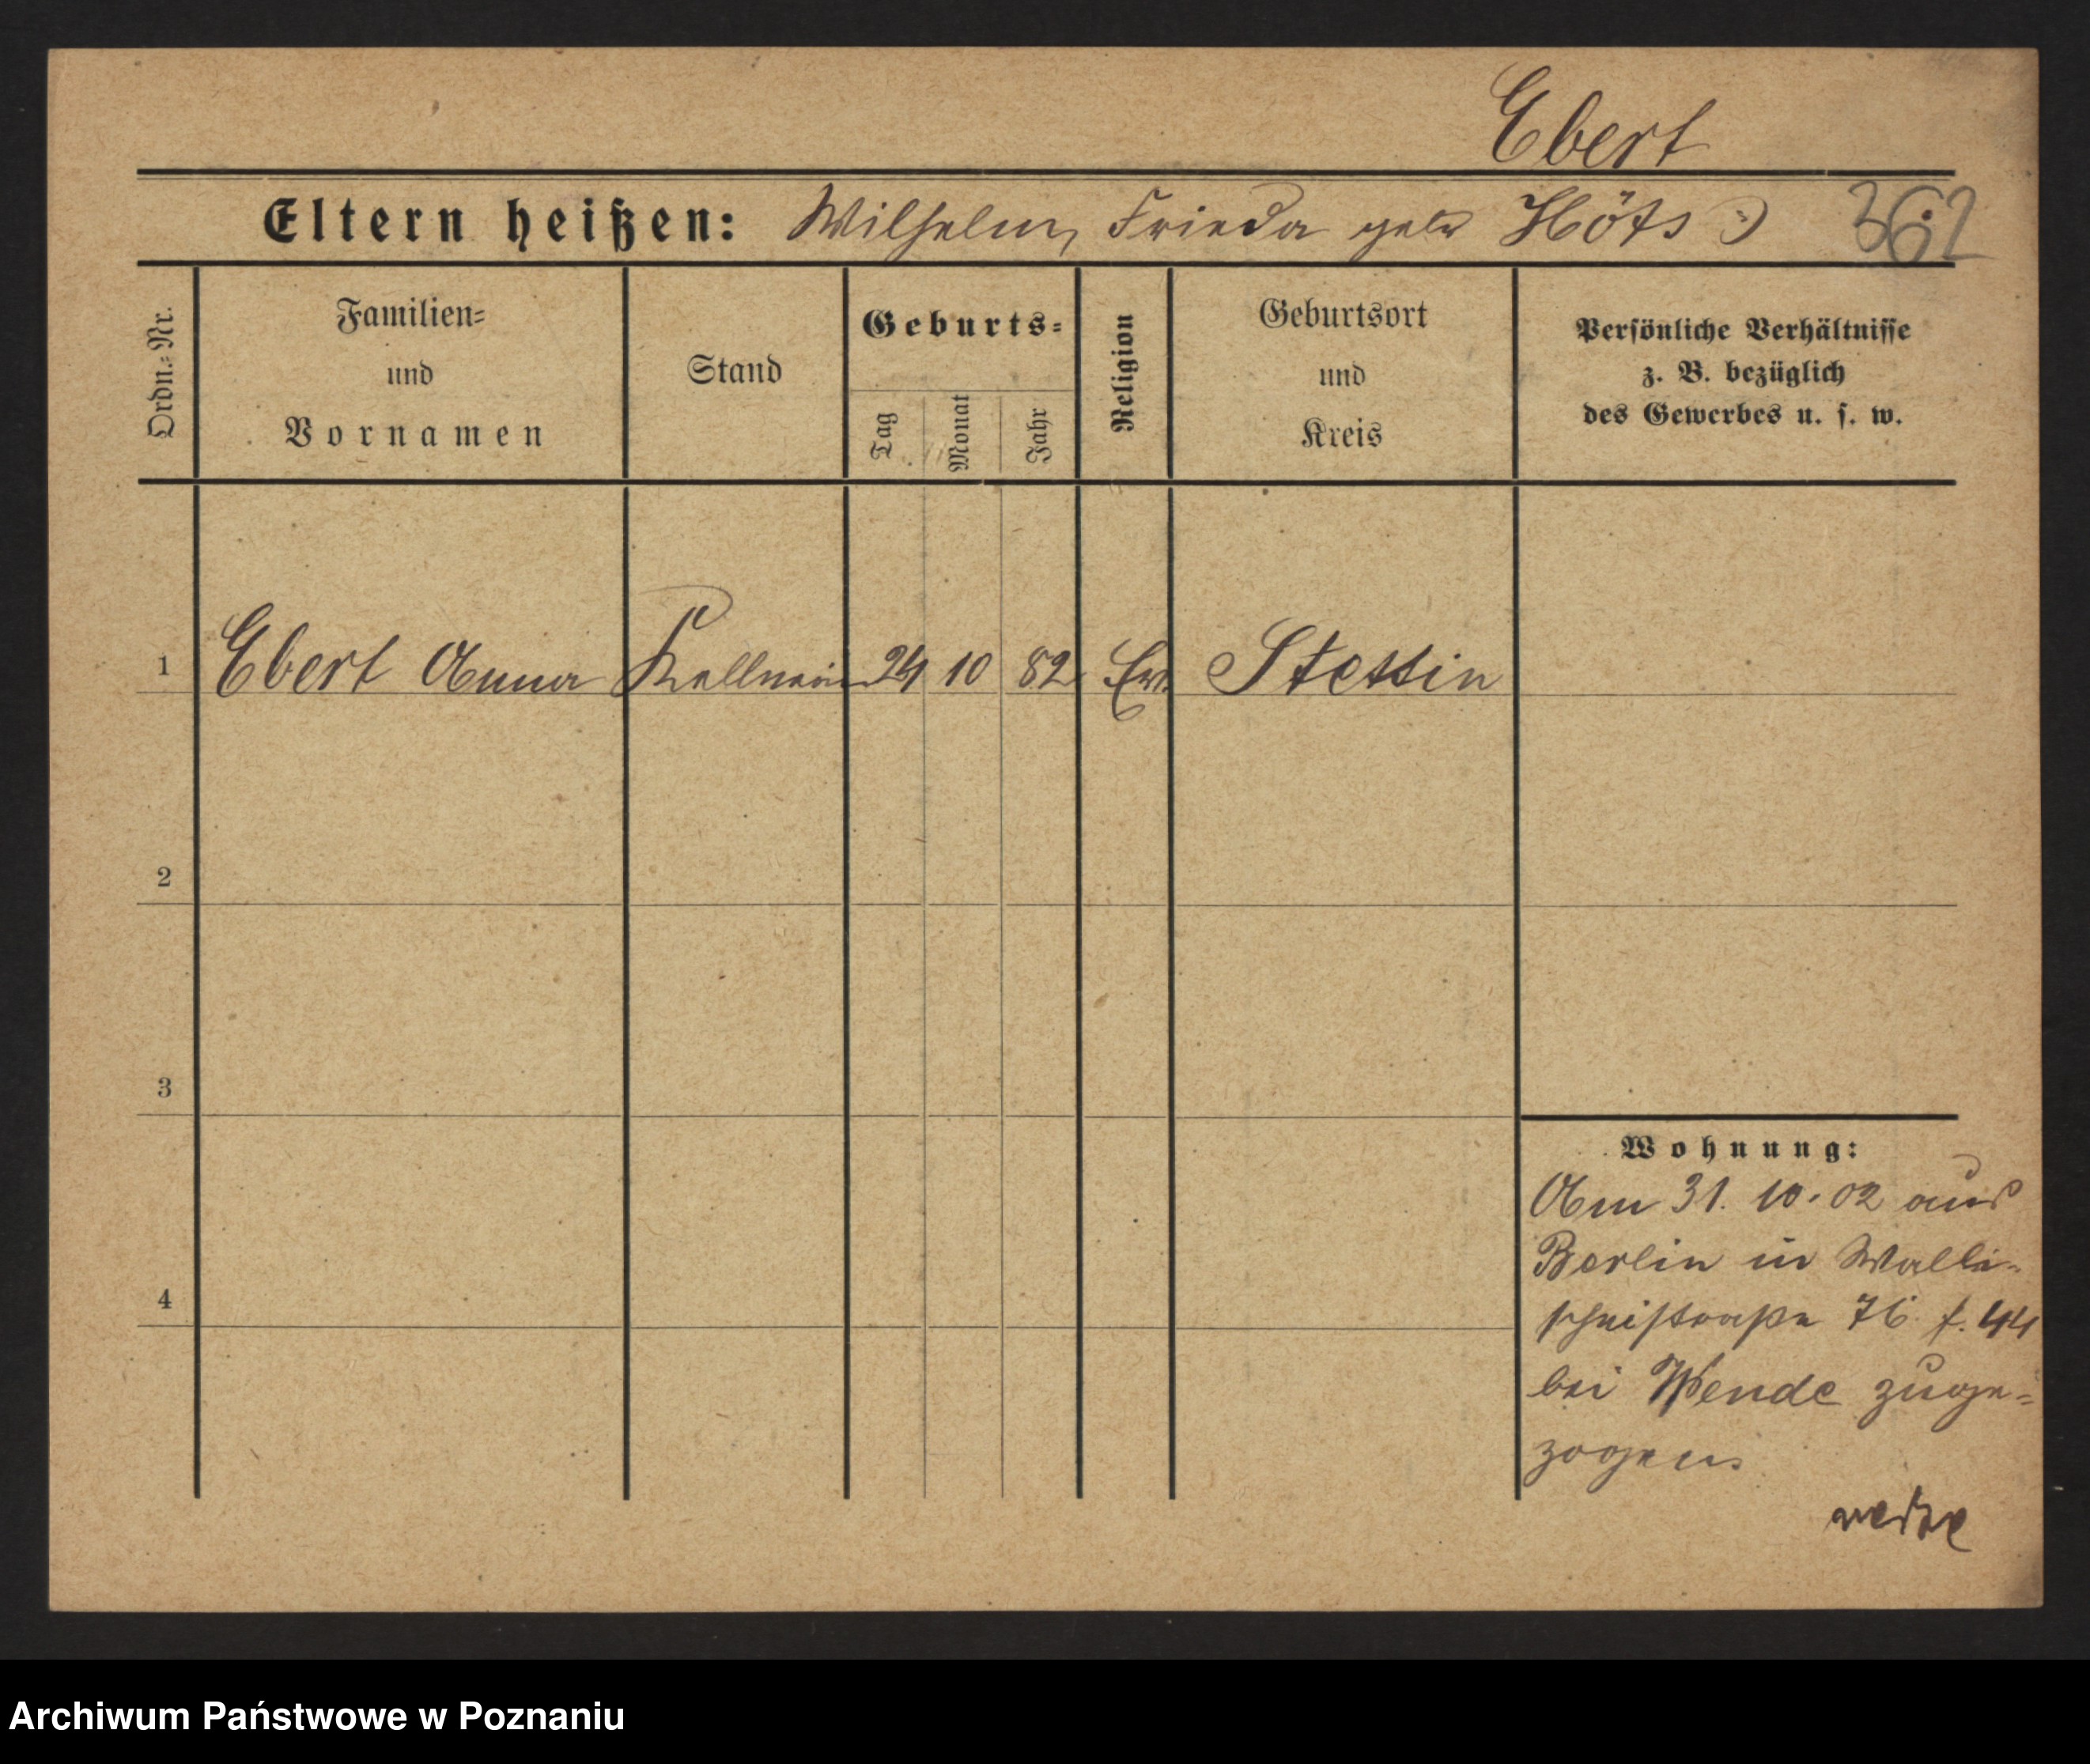 Ebert
Eltern heißen: Wilhelm, Frieda geb Höts 362
Ordn.-Nr.
Familien-
und
Vornamen
Stand
Geburts-
Tag
Monat
Jahr
Religion
Geburtsort
und
Kreis
Persönliche Verhältnisse
z. B. bezüglich
des Gewerbes u. s. w.
1 Ebert Anna Kellnerin 24 10 82 Ev. Stettin
2
3
4
Wohnung:
Am 31. 10. 02 aus
Berlin in Walli-
scheistraße 76 f. 44
bei Wende zuge-
zogen.
Archiwum Państwowe w Poznaniu